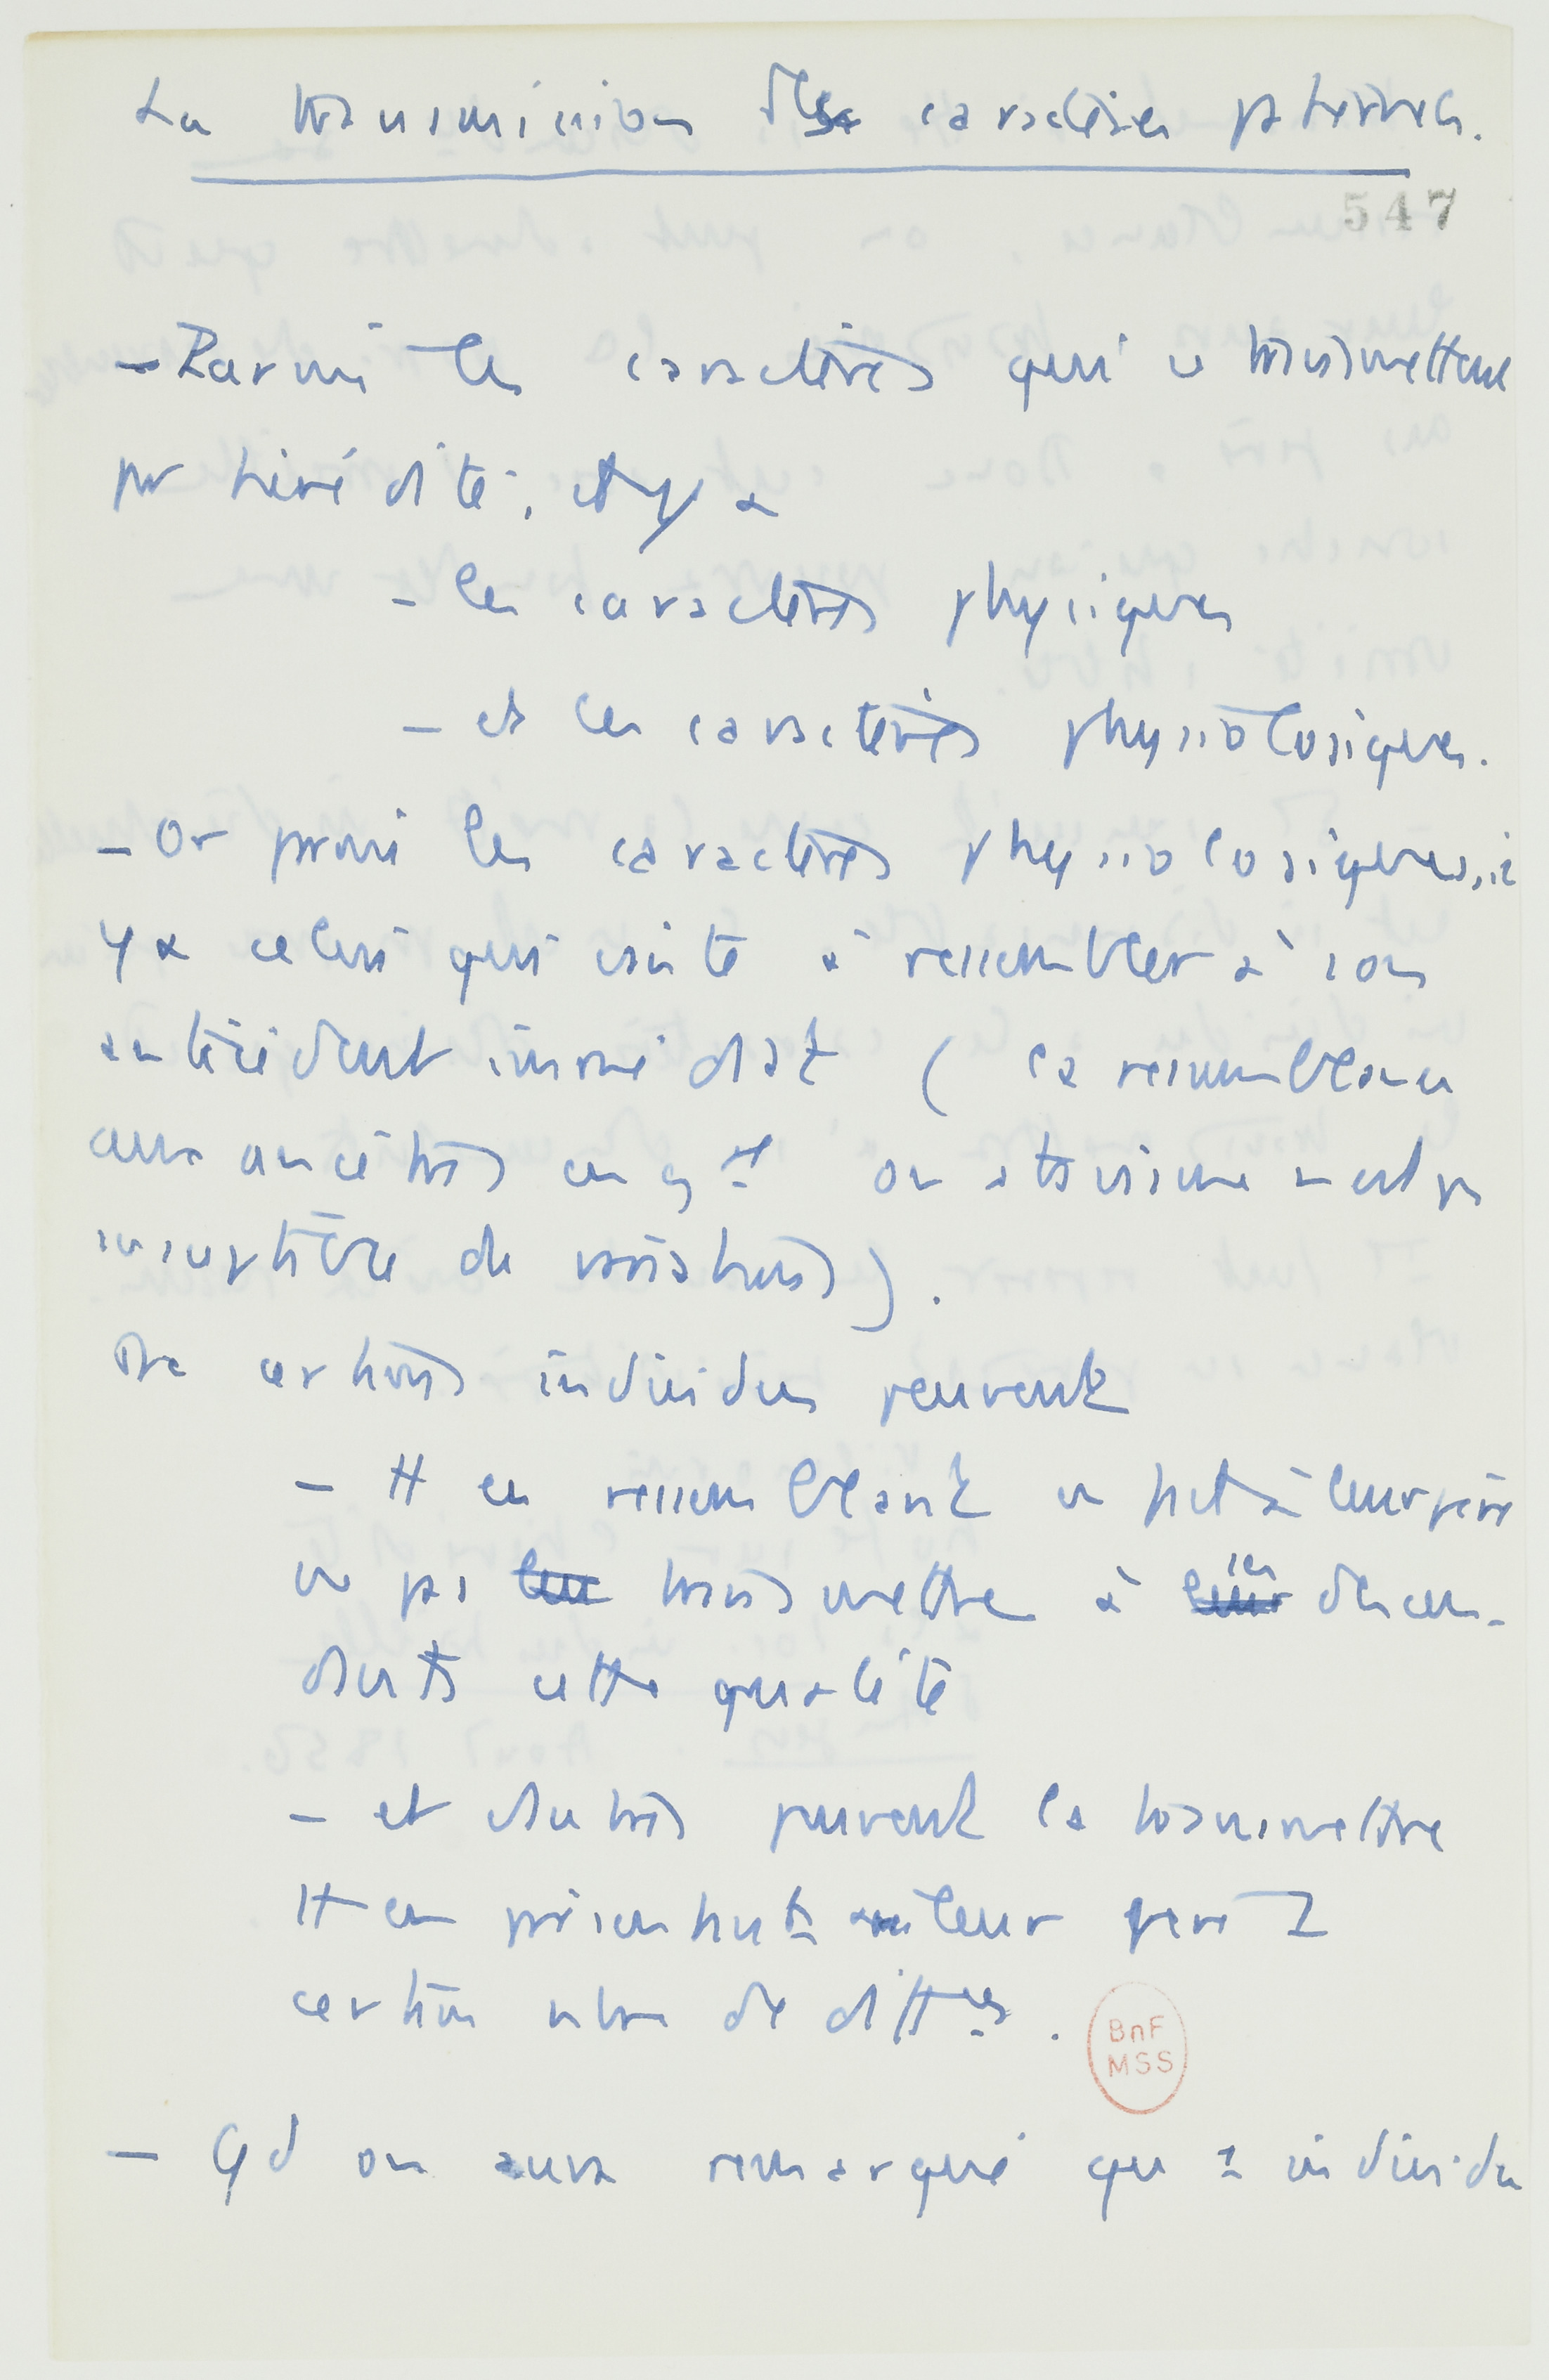 La transmission des caractères paternels.
547
- Parmi les caractères qui se transmettent
par hérédité, il y a
- les caractères physiques
- et les caractères physiologiques.
- Or parmi les caractères physiologiques, il
y a celui qui consiste à ressembler à son
antécédent immédiat ( la ressemblance
aux ancêtres en gt ou atavisme n'est pas
susceptible de variations).
Or certains individus peuvent
- tt en ressemblant en fait à leur père
ne pas transmettre à ses descen-
dants cette qualité
- et d'autres peuvent la transmettre
tt en présentant leur père
certain nbre de diffces.
BnF
MSS
- Qd on aura remarqué qu 1 individu